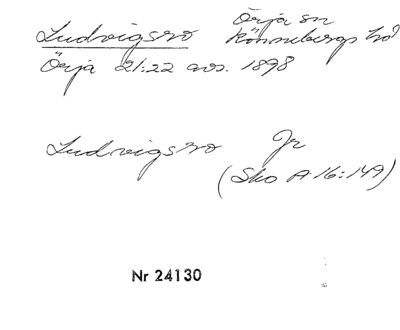 Ludvigsro Örja sn
Rönnebergs hd
Örja 21:22 avs. 1898
Ludvigsro Jr
(Sko A 16:149)
Nr 24130